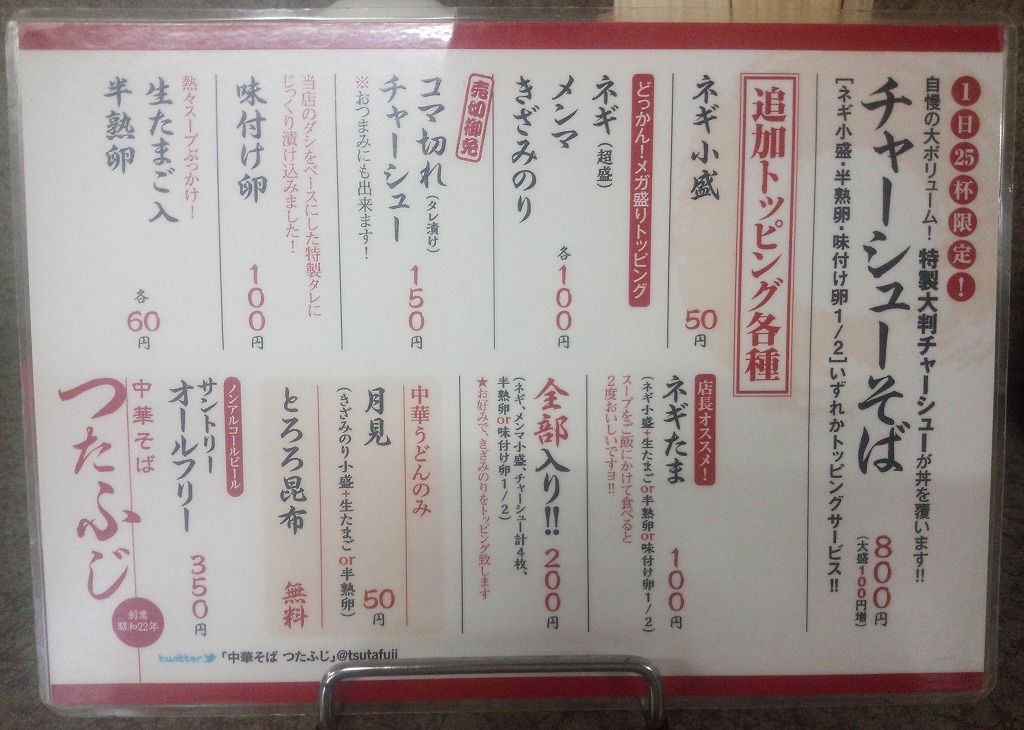 1日25杯限定!
自慢の大ボリューム! 特製大判チャーシューが丼を覆います!!
チャーシューそば 800円
(大盛100円増)
[ネギ小盛・半熟卵・味付け卵1/2]いずれかトッピングサービス!!
追加トッピング各種
ネギ小盛 50円
どっかん!メガ盛りトッピング
ネギ(超盛)
メンマ
きざみのり
各100円
売切御免
コマ切れ(タレ漬け)
チャーシュー 150円
※おつまみにも出来ます!
当店のダシをベースにした特製タレに
じっくり漬け込みました!
味付け卵 100円
熱々スープぶっかけ!
生たまご入
半熟卵
各60円
店長オススメ!
ネギたま 100円
(ネギ小盛+生たまごor半熟卵or味付け卵1/2)
スープをご飯にかけて食べると
2度おいしいですヨ!!
全部入り!! 200円
(ネギ、メンマ小盛、チャーシュー計4枚、
半熟卵or味付け卵1/2)
★お好みで、きざみのりをトッピング致します
中華うどんのみ
月見 50円
(きざみのり小盛+生たまごor半熟卵)
とろろ昆布 無料
ノンアルコールビール
サントリー
オールフリー 350円
中華そば
つたふじ
創業
昭和22年
twitter 「中華そば つたふじ」@tsutafuji